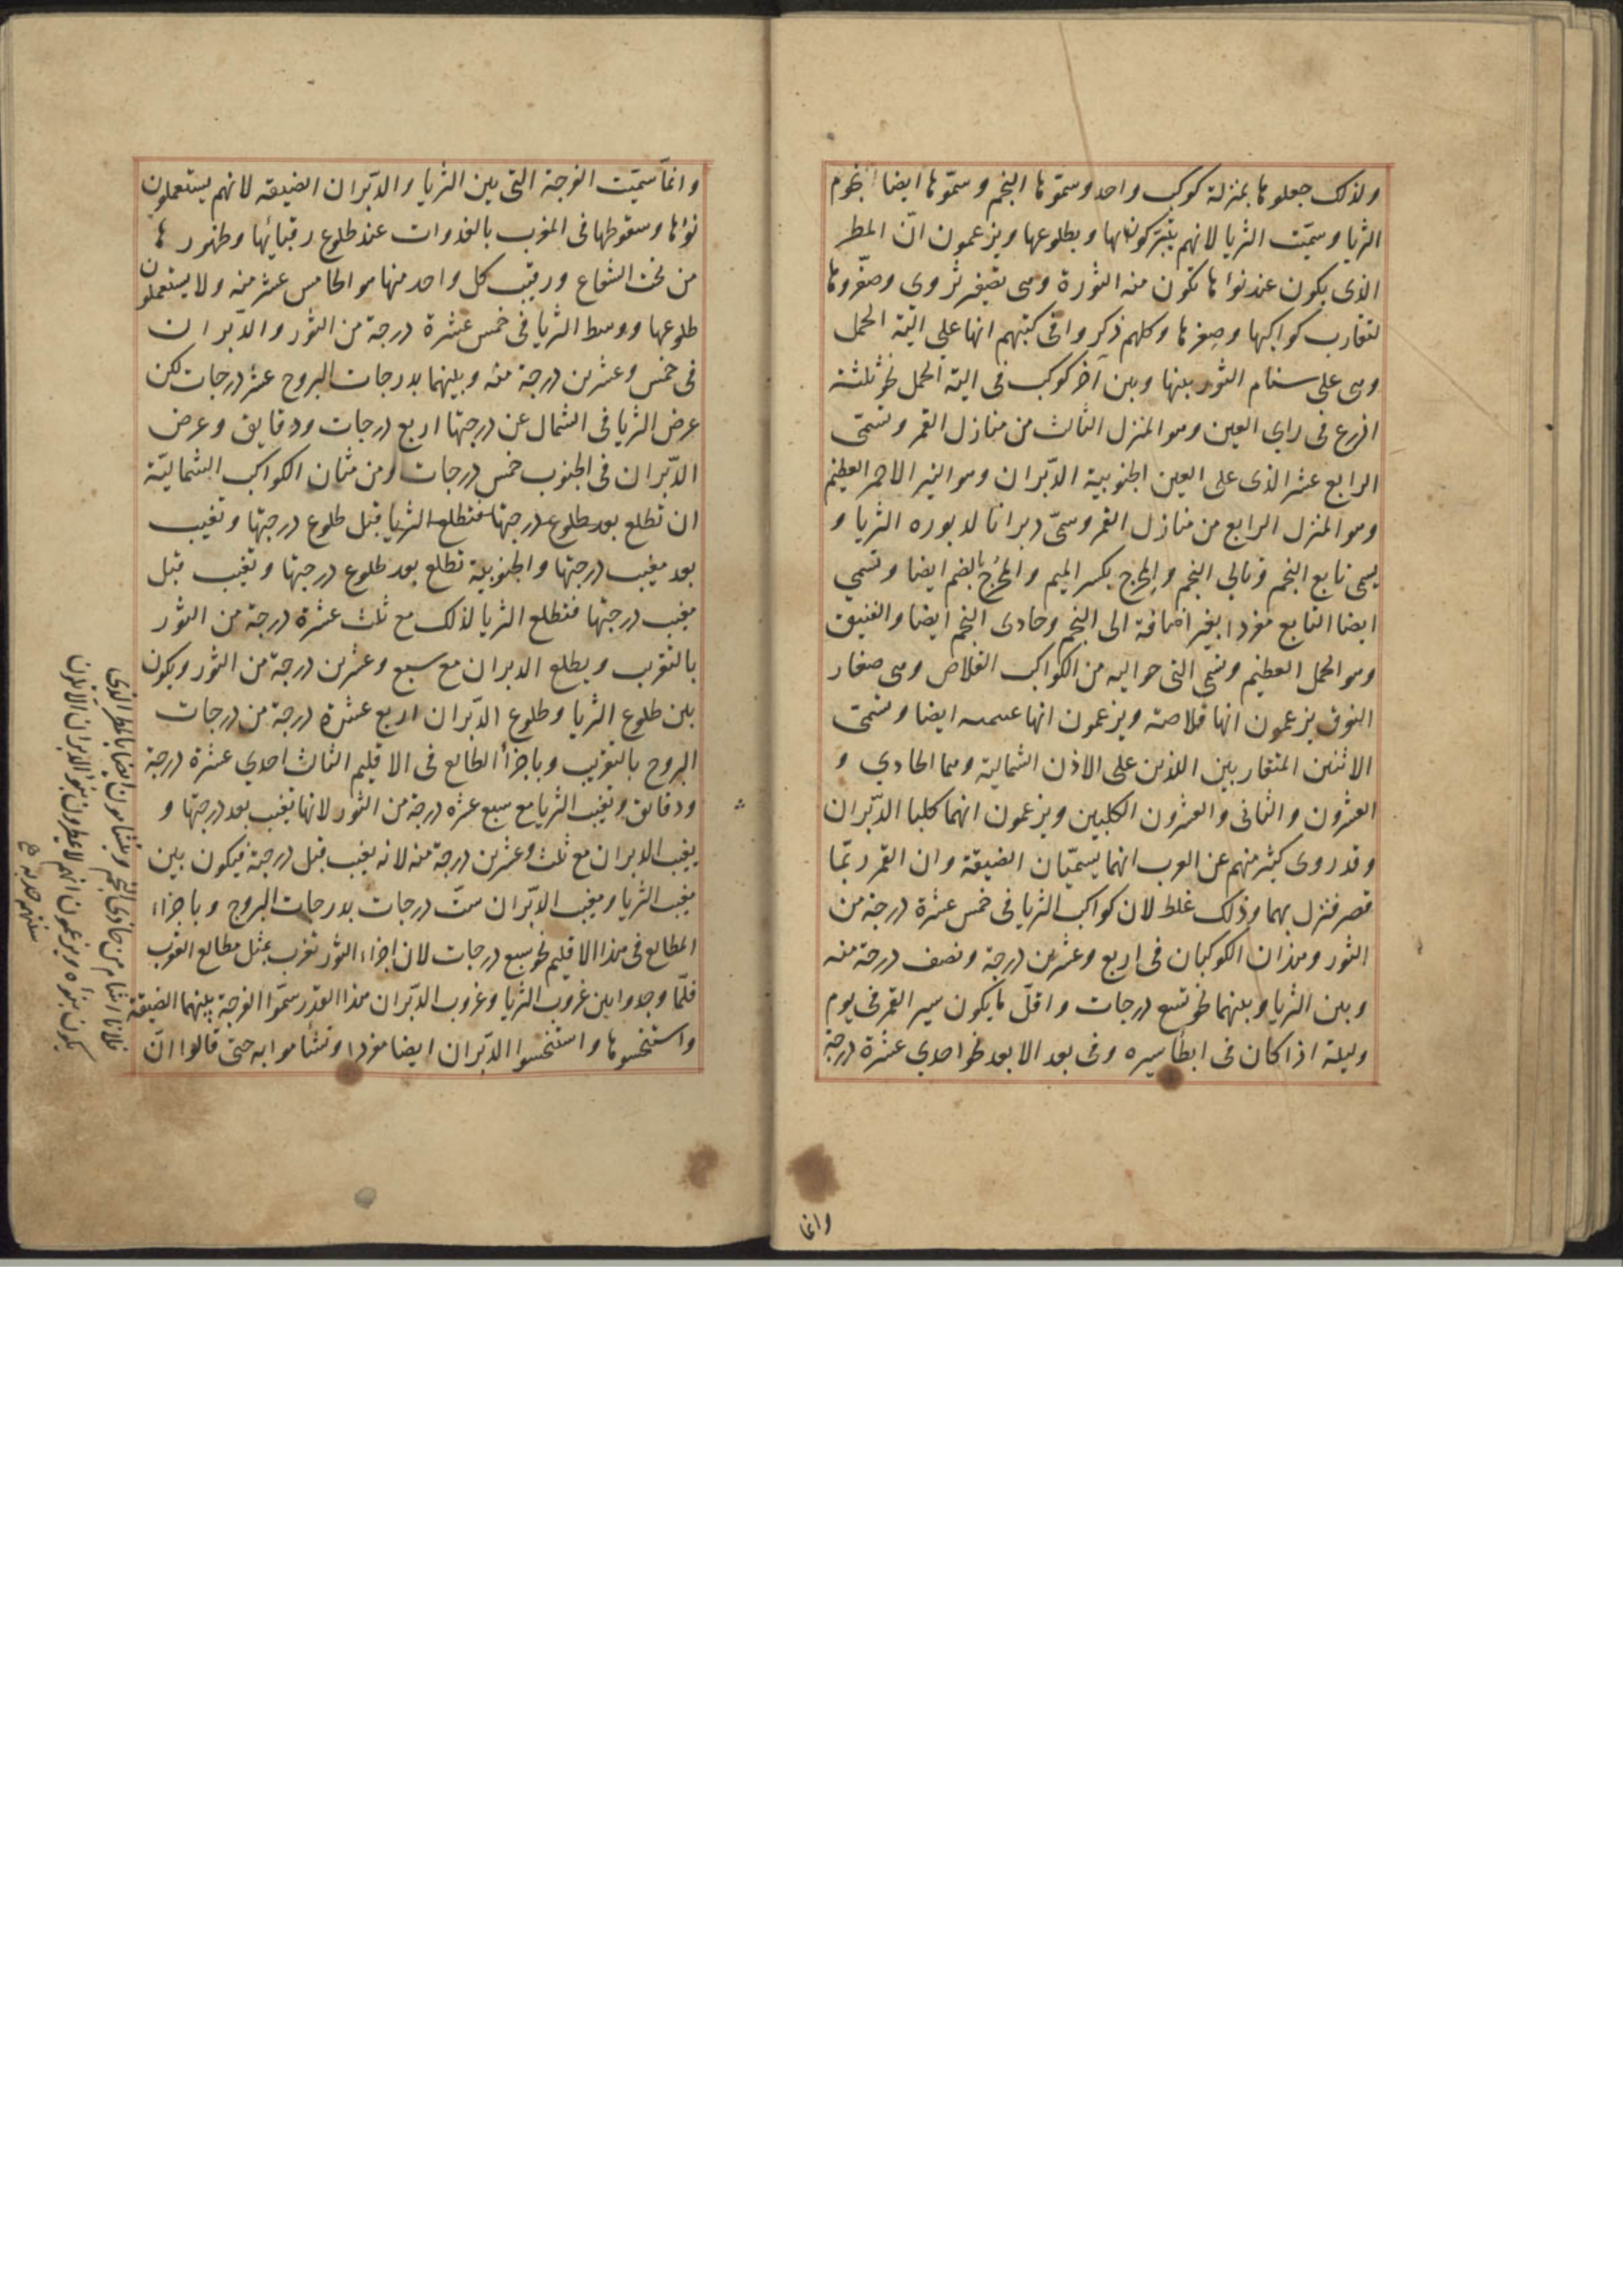 ولذلك جعلوها بمنزلة كوكب واحد وسمّوها النجم وسمّوها ايضا نجوم
الثريا وسمّيت الثريا لانهم يتبرّكون بها وبطلوعها ويزعمون انّ المطر
الذى يكون عند نوائها تكون منه الثروة وهى تصغير ثروى وصغّروها
لتقارب كواكبها وصغرها وكلهم ذكروا فى كتبهم انها على الية الحمل
وهى على سنام الثور بينها وبين آخر كوكب فى الية الحمل نحو ثلثة
اذرع فى راى العين وهو المنزل الثالث من منازل القمر وتسمّى
الرابع عشر الذى على العين الجنوبية الدّبران وهو النير الاحمر العظيم
وهو المنزل الرابع من منازل القمر وسمّى دبرانا لدبوره الثريا و
يسمى تابع النجم وتالى النجم والمجدح بكسر الميم والمجدح بالضم ايضا وتسمى
ايضا التابع مفردا بغير اضافة الى النجم وحادى النجم ايضا والفنيق
وهو الجمل العظيم وتسمى التى حواليه من الكواكب القلاص وهى صغار
النوق يزعمون انها قلاصه ويزعمون انها ايضا وتسمّى
الاثنين المتقاربين اللذين على الاذن الشمالية وهما الحادي و
العشرون والثانى والعشرون الكلبين ويزعمون انهما كلبا الدّبران
وقد روى كثير منهم عن العرب انهما يسميّان الضيقة وان القمر ربّما
قصر فنزل بهما وذلك غلط لان كواكب الثريا فى خمس عشرة درجة من
الثور وهذان الكوكبان فى اربع وعشرين درجة ونصف درجة منه
وبين الثريا وبينهما نحو تسع درجات واقلّ ما يكون سير القمر فى يوم
وليلة اذا كان فى ابطأ سيره وفى بعد الابعد نحو احدي عشرة درجة
وانما
وانمّا سمّيت الفرجة التى بين الثريا والدّبران الضيقه لانهم يستعملون
نواها وسقوطها فى المغرب بالغدوات عند طلوع رقبائها وظهورها
من تحت الشعاع ورقيب كل واحد منها هو الخامس عشر منه ولا يستعملون
طلوعها ووسط الثريا فى خمس عشرة درجة من الثور والدّبران
فى خمس وعشرين درجة منه وبينهما بدرجات البروج عشر درجات لكن
عرض الثريا فى الشمال عن درجتها اربع درجات ودقايق وعرض
الدّبران فى الجنوب خمس درجات ومن شان الكواكب الشماليّة
ان تطلع بعد طلوع درجتها فتطلع الثريا قبل طلوع درجتها وتغيب
بعد مغيب درجتها والجنوبية تطلع بعد طلوع درجتها وتغيب قبل
مغيب درجتها فتطلع الثريا لذلك مع ثلث عشرة درجة من الثور
بالتقريب ويطلع الدبران مع سبع وعشرين درجة من الثور ويكون
بين طلوع الثريا وطلوع الدّبران اربع عشرة درجة من درجات
البروج بالتقريب وباجزأ الطالع فى الاقليم الثالث احدي عشرة درجة
ودقائق وتغيب الثريا مع سبع عشره درجة من الثور لانها تغيب بعد درجتها و
يغيب الدبران مع ثلث وعشرين درجة منه لانه يغيب قبل درجته فيكون بين
مغيب الثريا ومغيب الدّبران ستّ درجات بدرجات البروج وباجزاء
المطالع فى هذا الاقليم نحو سبع درجات لان اجزاء الثور تغرب بمثل مطالع العقرب
فلمّا وجدوا بين غروب الثريا وغروب الدّبران هذا القدر سمّوا الفرجة بينهما الضيقة
واستنحسوها واستنحسوا الدّبران ايضا مفردا وتشأموا به حتى قالوا انّ
فلانا اشام من حادى النجم ويتشامون ايضا بالمطر الذى
يكون بنوأه ويزعمون انهم لا يمطرون بنوأ الدبران الا يكون
سنتهم جدبه صح